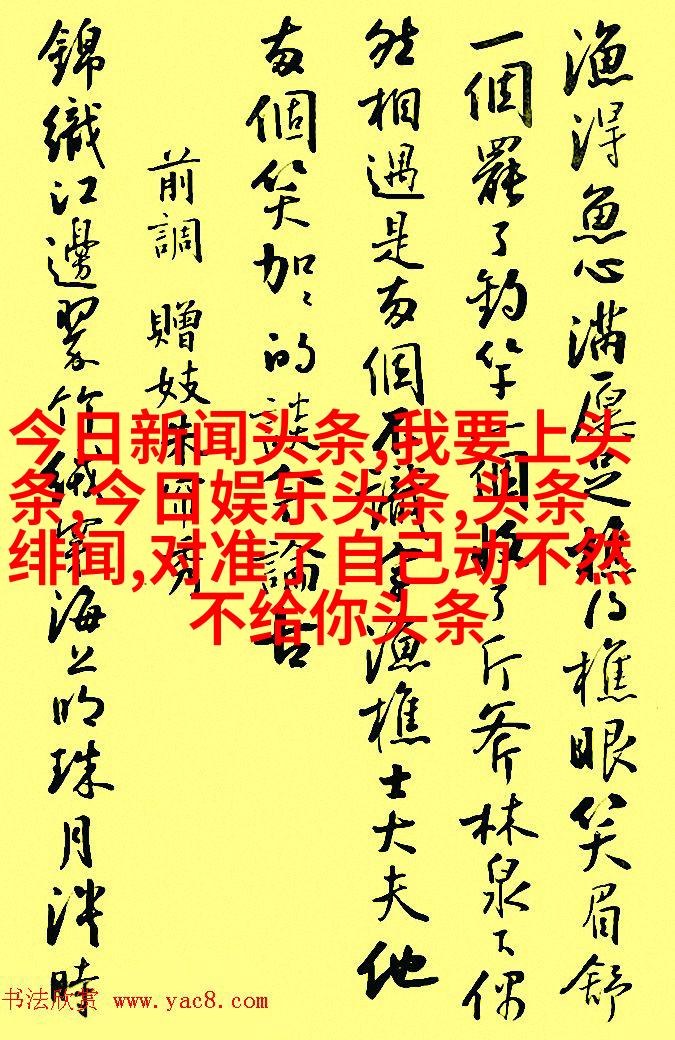 漁得魚心滿愿足樵得樵眼笑眉舒
一個罷了釣竿一個收了斤斧林泉下偶
然相遇是兩個不識字漁樵士大夫他
兩個笑加〻的談今論古
前調 贈妓朱簾秀
錦織江邊翠竹絨穿海上明珠月淡時
今日新闻头条,我要上头
条,今日娱乐头条,头条
绯闻,对准了自己动不然
不给你头条
书法欣赏 www.yac8.com